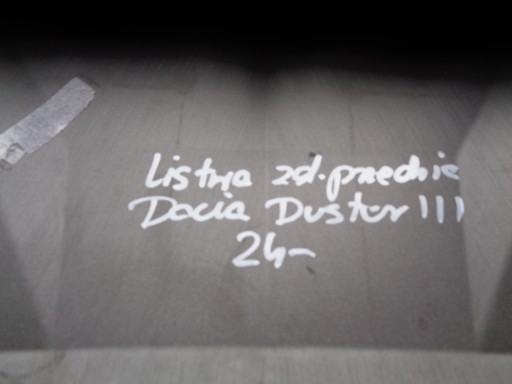 Listwa zd. przednie
Dacia Duster III
24-